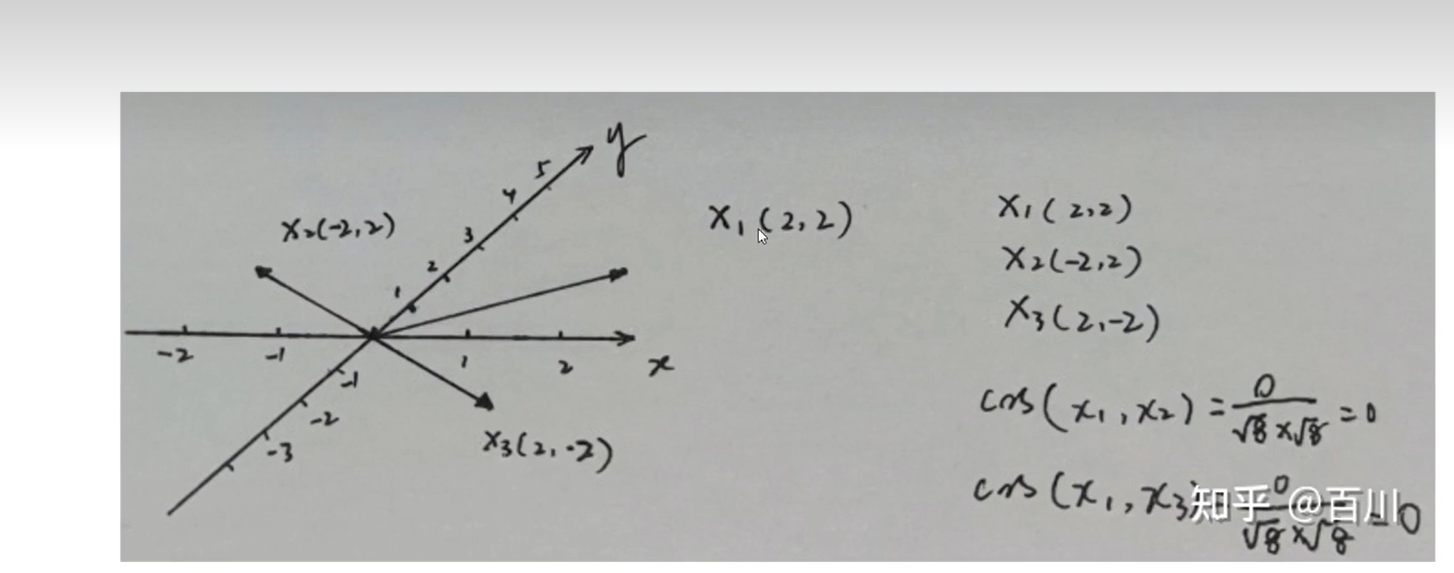 y
5
4
3
2
1
X₂(-2,2)
-2 -1 1 2 x
-1
-2
-3
X₃(2,-2)
X₁(2,2)
X₁(2,2)
X₂(-2,2)
X₃(2,-2)
cos(x₁,x₂)=0/(√8×√8)=0
cos(x₁,x₃)=0/(√8×√8)=0
知乎 @百川